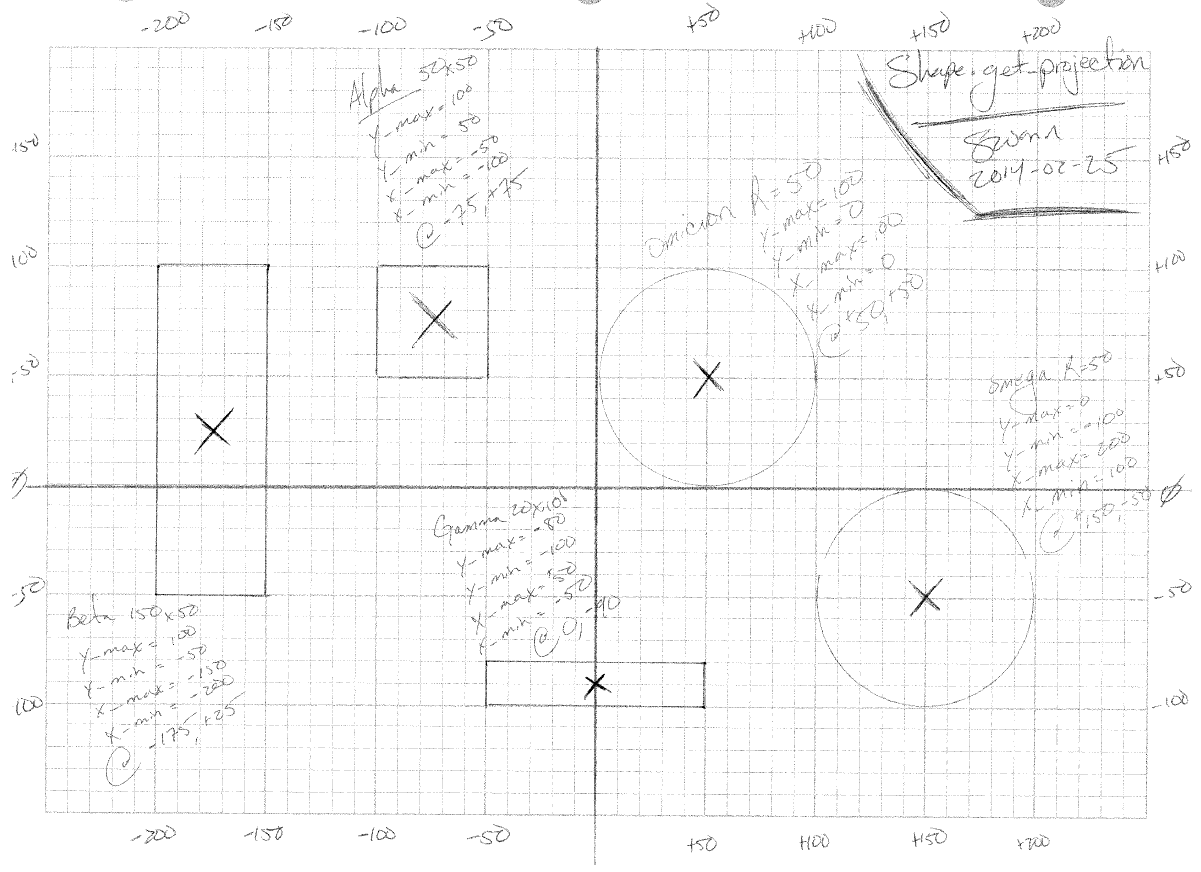 -200 -150 -100 -50 +50 +100 +150 +200
Shape.get_projection
2014-02-25
Alpha 50x50
Y_max = 100
Y_min = 50
X_max = -50
X_min = -100
@ -75, +75
Omicron R=50
Y_max = 100
Y_min = 0
X_max = 100
X_min = 0
@ +50, +50
Omega R=50
Y_max = 0
Y_min = -100
X_max = 200
X_min = 100
@ +150, -50
Gamma 20x100
Y_max = -80
Y_min = -100
X_max = 50
X_min = -50
@ 0, -90
Beta 150x50
Y_max = 100
Y_min = -50
X_max = -150
X_min = -200
@ -175, +25
150
100
50
Ø
-50
100
+150
+100
+50
Ø
-50
-100
-200 -150 -100 -50 +50 +100 +150 +200